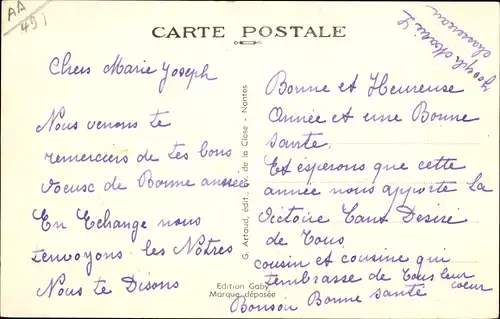 AA
451
CARTE POSTALE
Joseph
Chers Marie Joseph
Nous venons te
remerciers de tes bons
voeusc de Bonne année
En Echange nous
tenvoyons les Nôtres
Nous te Disons
G. Artaud, édit., Av. de la Close - Nantes
Edition Gaby
Marque déposée
Bonne et Heureuse
Année et une Bonne
sante.
Et esperons que cette
année nous apporte la
victoire tant Desire
de tous
cousin et cousine qui
tembrasse de tous leur
coeur
Bonson Bonne sante